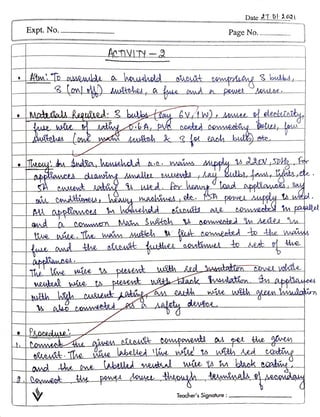 Date 27 01 2021
Expt. No.
Page No.
ACTIVITY - 2
• Aim: To assemble a household circuit comprising 3 bulbs,
3 (on/off) switches, a fuse and a power source.
• Materials Required: 3 bulbs (say 6V, 1W), source of electricity,
fuse wire of rating 0.6A, PVC coated connecting wires, four
switches (one main switch & 3 for each bulb) etc.
• Theory: In India, household a.c. mains supply is 220V, 50Hz. For
appliances drawing smaller currents, say bulbs, fans, lights, etc.
5A current rating is used. For heavy load appliances, say
air conditioners, heavy machines, etc. 15A power supply is used.
All appliances in household circuits are connected in parallel
and a common main switch is connected in series in
the live wire. The main switch is first connected to the mains
fuse and the circuit further continues to rest of the
appliances.
The live wire is present with red insulation cover while
neutral wire is present with black insulation. In appliances
with high current rating, an earth wire with green insulation
is also connected as a safety device.
• Procedure:
1. Connect the given circuit components as per the given
circuit. The wire labelled 'live wire' is with red coating
and the one labelled neutral wire is in black coating.
2. Connect the power source through terminals of secondary
Teacher's Signature :